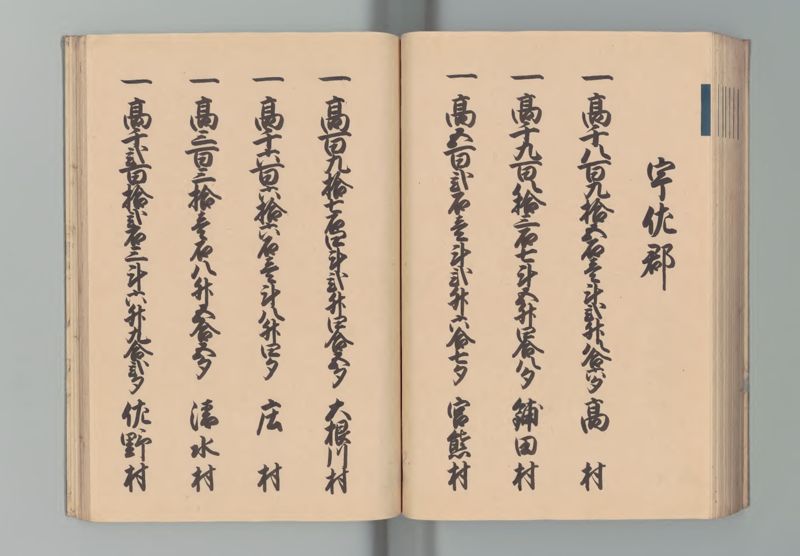 宇佐郡
一高千八百九拾五石壱斗弐升八合六夕 高村
一高千九百八拾三石七斗五升四合八夕 鋪田村
一高五百弐石壱斗弐升六合七夕 宮熊村
一高百九拾七石四斗弐升四合五夕 大根川村
一高千六百六拾六石壱斗八升四夕 庄村
一高三百三拾壱石八升五合五夕 清水村
一高千弐百拾弐石三斗六升九合弐夕 佐野村